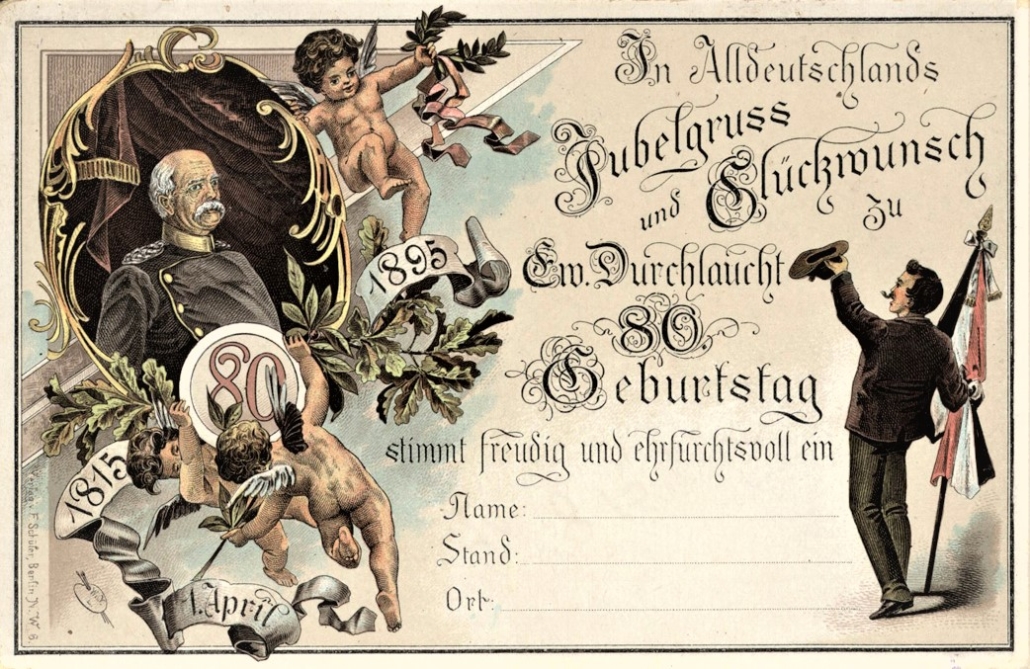 In Alldeutschlands
Jubelgruss
und Glückwunsch
zu
Ew. Durchlaucht
80
Geburtstag
stimmt freudig und ehrfurchtsvoll ein
Name:
Stand:
Ort:
1895
80
1815
1. April
Verlag v. F. Schüler, Berlin N.W. 6.